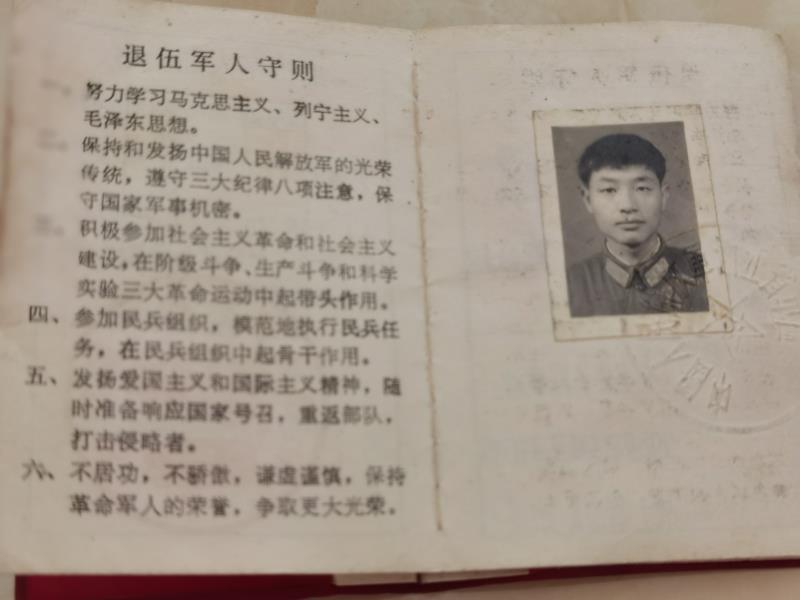 退伍军人守则
一、努力学习马克思主义、列宁主义、
毛泽东思想。
二、保持和发扬中国人民解放军的光荣
传统，遵守三大纪律八项注意，保
守国家军事机密。
三、积极参加社会主义革命和社会主义
建设，在阶级斗争、生产斗争和科学
实验三大革命运动中起带头作用。
四、参加民兵组织，模范地执行民兵任
务，在民兵组织中起骨干作用。
五、发扬爱国主义和国际主义精神，随
时准备响应国家号召，重返部队，
打击侵略者。
六、不居功，不骄傲，谦虚谨慎，保持
革命军人的荣誉，争取更大光荣。